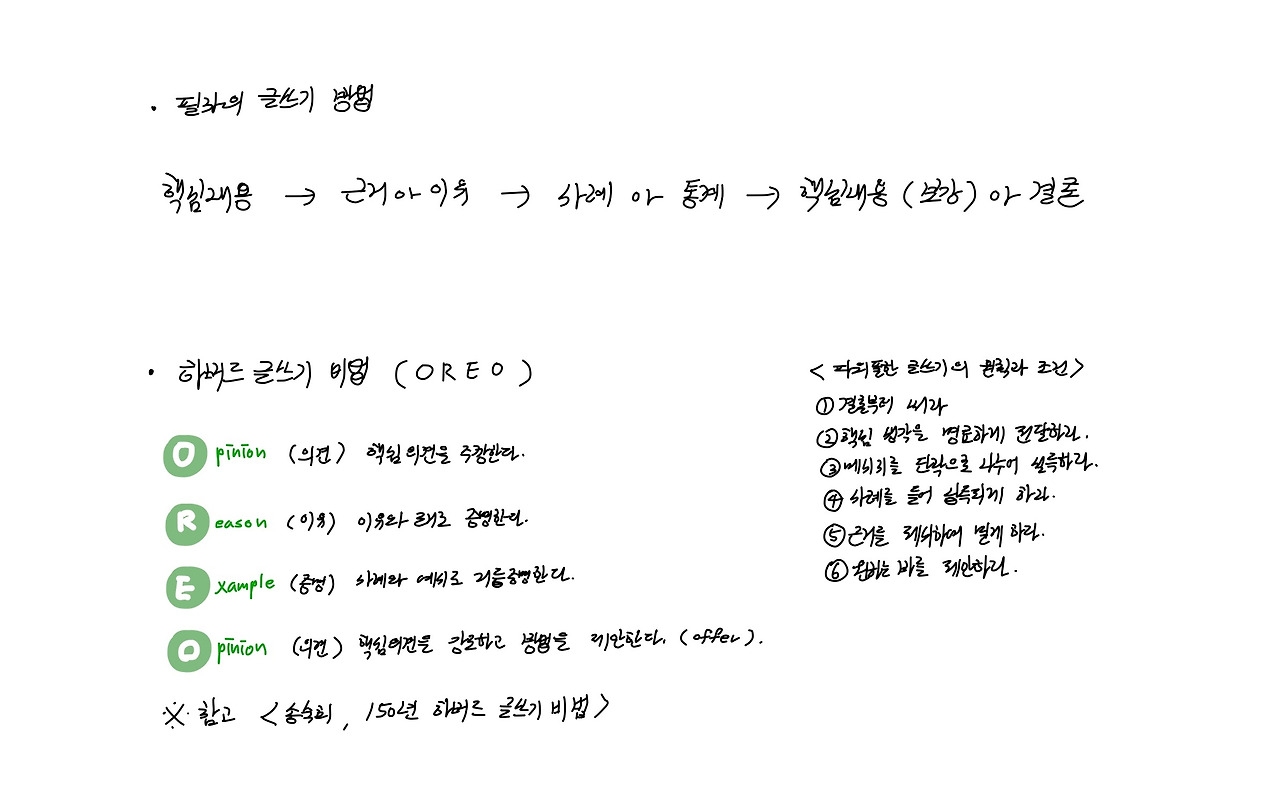 · 필자의 글쓰기 방법
핵심내용 → 근거나 이유 → 사례 나 통계 → 핵심내용 (보강) 나 결론
· 하버드 글쓰기 비법 (OREO)
Opinion (의견) 핵심 의견을 주장한다.
Reason (이유) 이유와 근거로 증명한다.
Example (증명) 사례와 예시로 거듭증명한다.
Opinion (의견) 핵심의견을 강조하고 방법을 제안한다. (offer).
※ 참고 <송숙희, 150년 하버드 글쓰기 비법>
< 파워풀한 글쓰기의 원칙과 조건>
① 결론부터 써라
② 핵심 생각을 명료하게 전달하라.
③ 메시지를 단락으로 나누어 설득하라.
④ 사례를 들어 납득되게 하라.
⑤ 근거를 제시하여 믿게 하라.
⑥ 원하는 바를 제안하라.